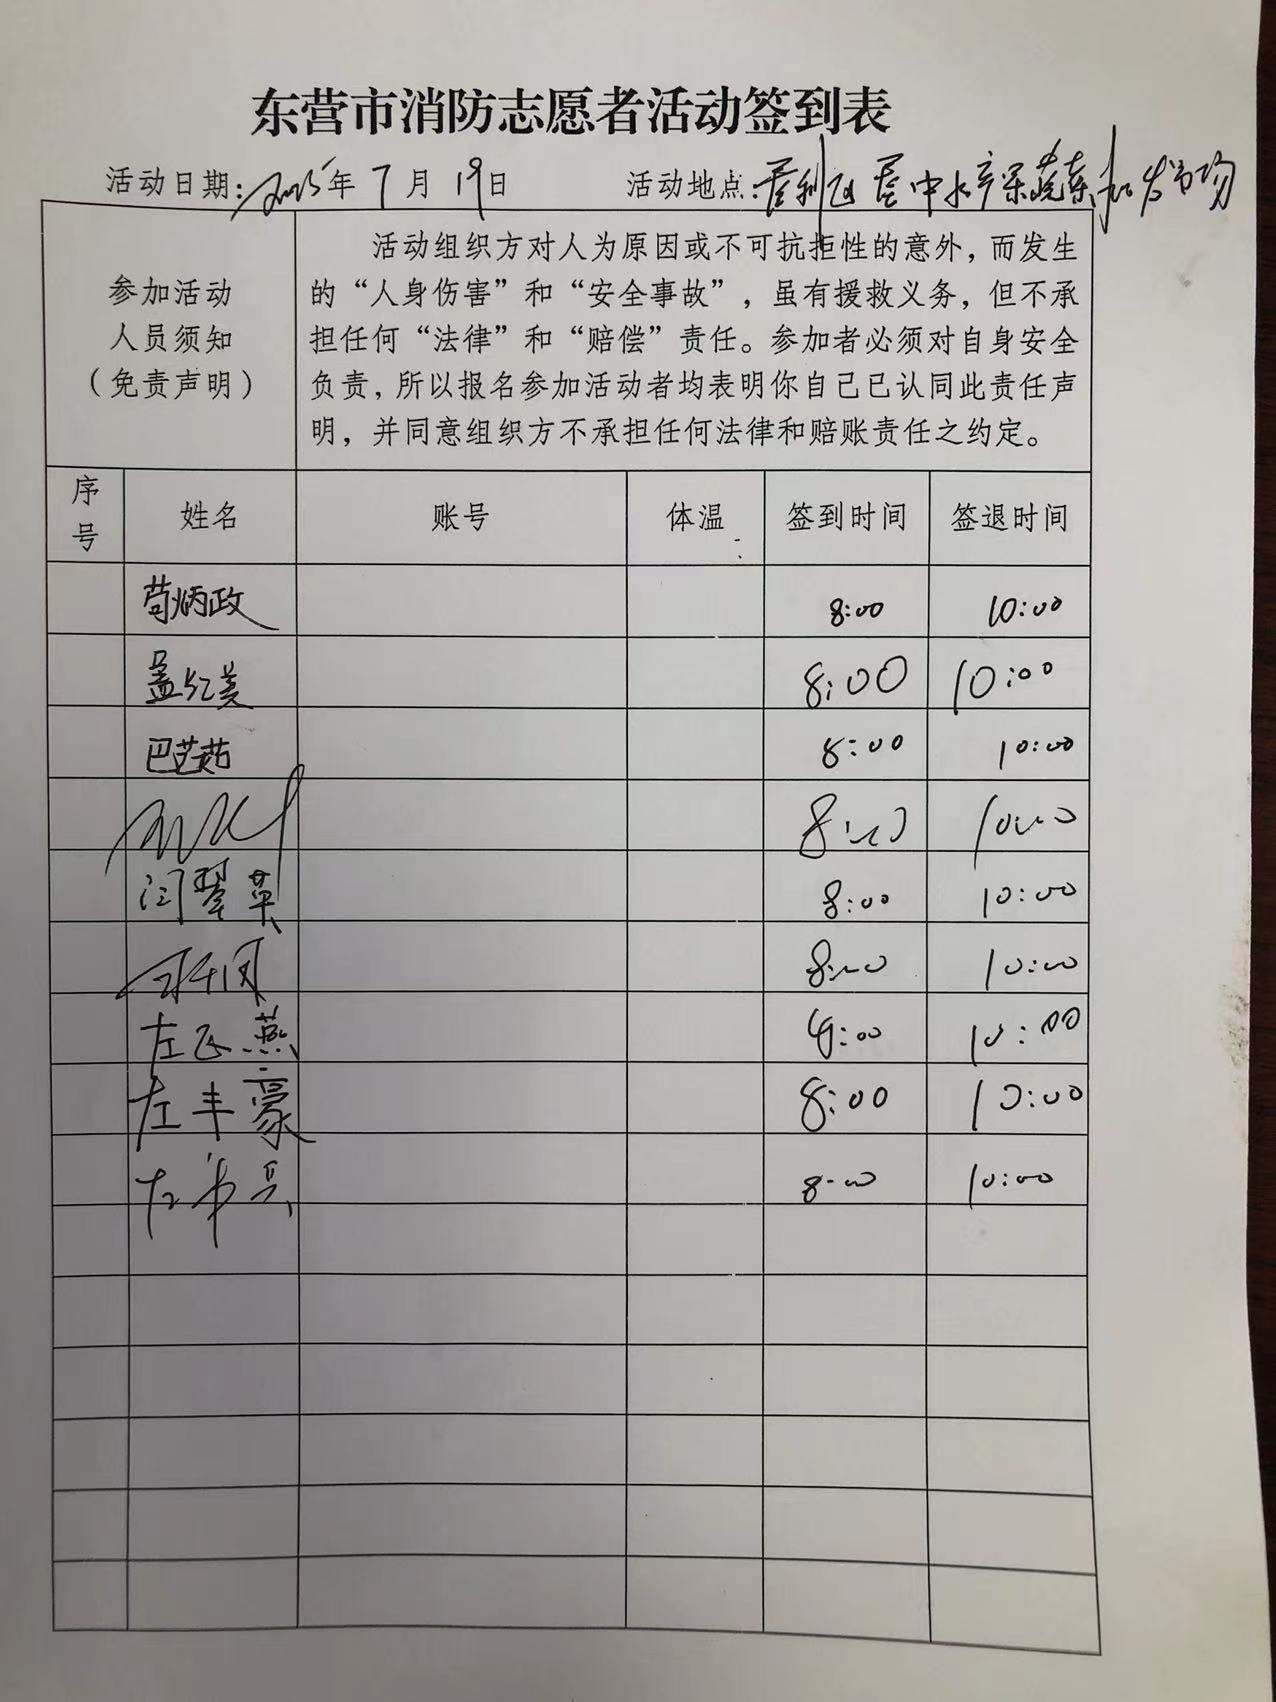 东营市消防志愿者活动签到表
活动日期:2025年 7月 19日 活动地点:垦利区垦中水产果蔬东批发市场
参加活动
人员须知
(免责声明)
活动组织方对人为原因或不可抗拒性的意外，而发生
的“人身伤害”和“安全事故”，虽有援救义务，但不承
担任何“法律”和“赔偿”责任。参加者必须对自身安全
负责，所以报名参加活动者均表明你自己已认同此责任声
明，并同意组织方不承担任何法律和赔账责任之约定。
序号 姓名 账号 体温 签到时间 签退时间
苟炳政 8:00 10:00
孟红美 8:00 10:00
巴艺茹 8:00 10:00
8:00 10:00
闫翠英 8:00 10:00
8:00 10:00
左飞燕 8:00 10:00
左丰豪 8:00 10:00
左 兵 8:00 10:00